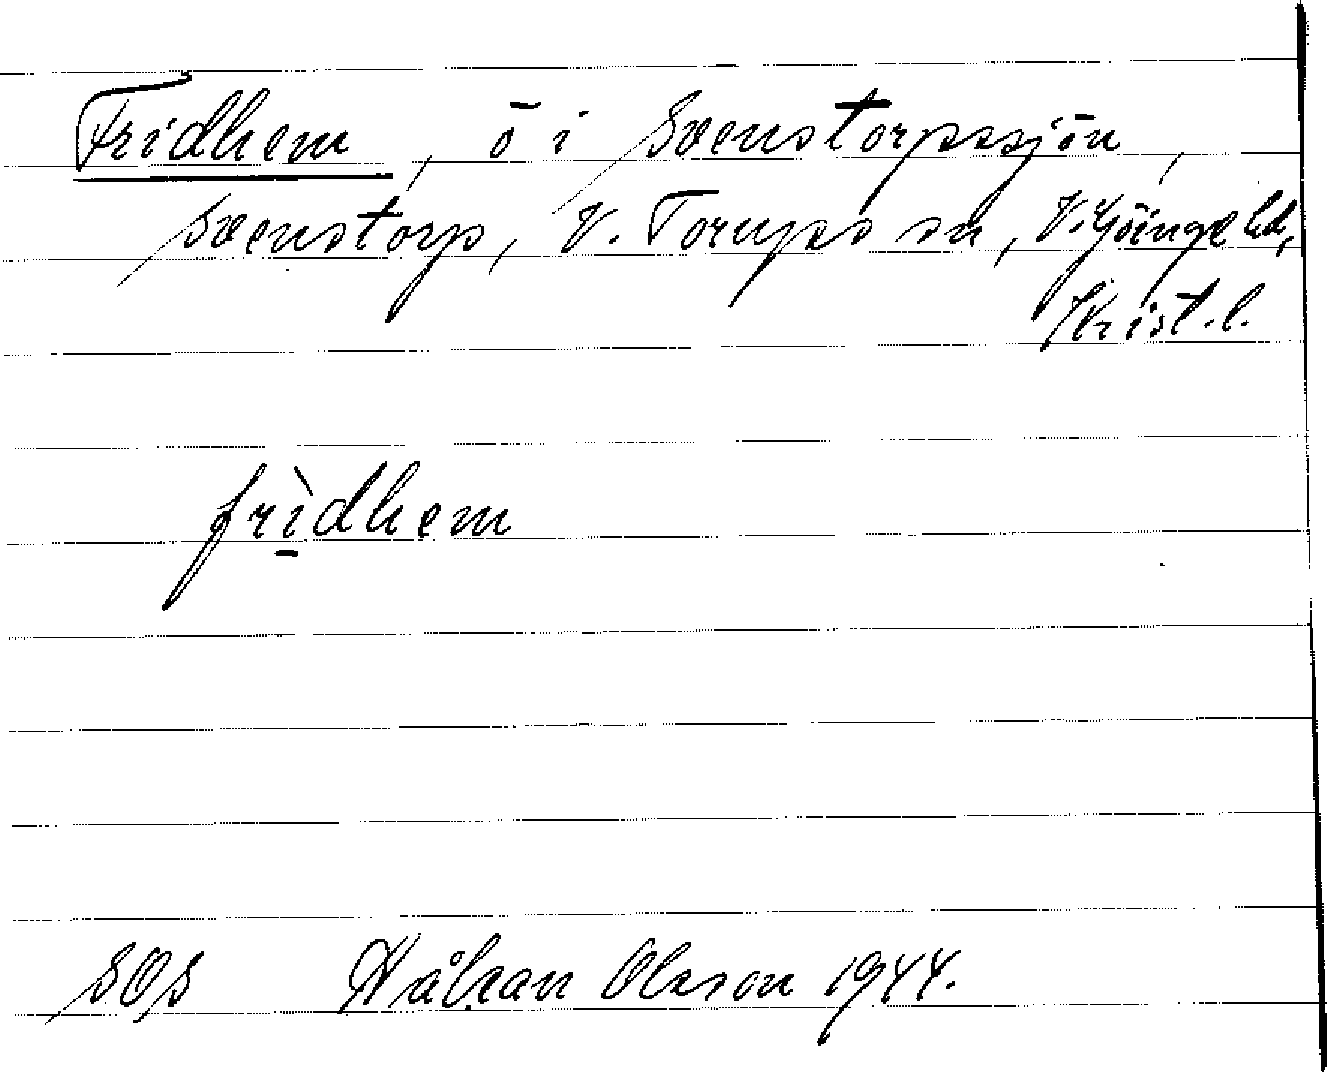 Fridhem, ö i Svenstorpssjön,
Svenstorp, V. Torups sn, V. Göinge hd,
Krist. l.
frìdhem
SOS Håkan Olsson 1944.